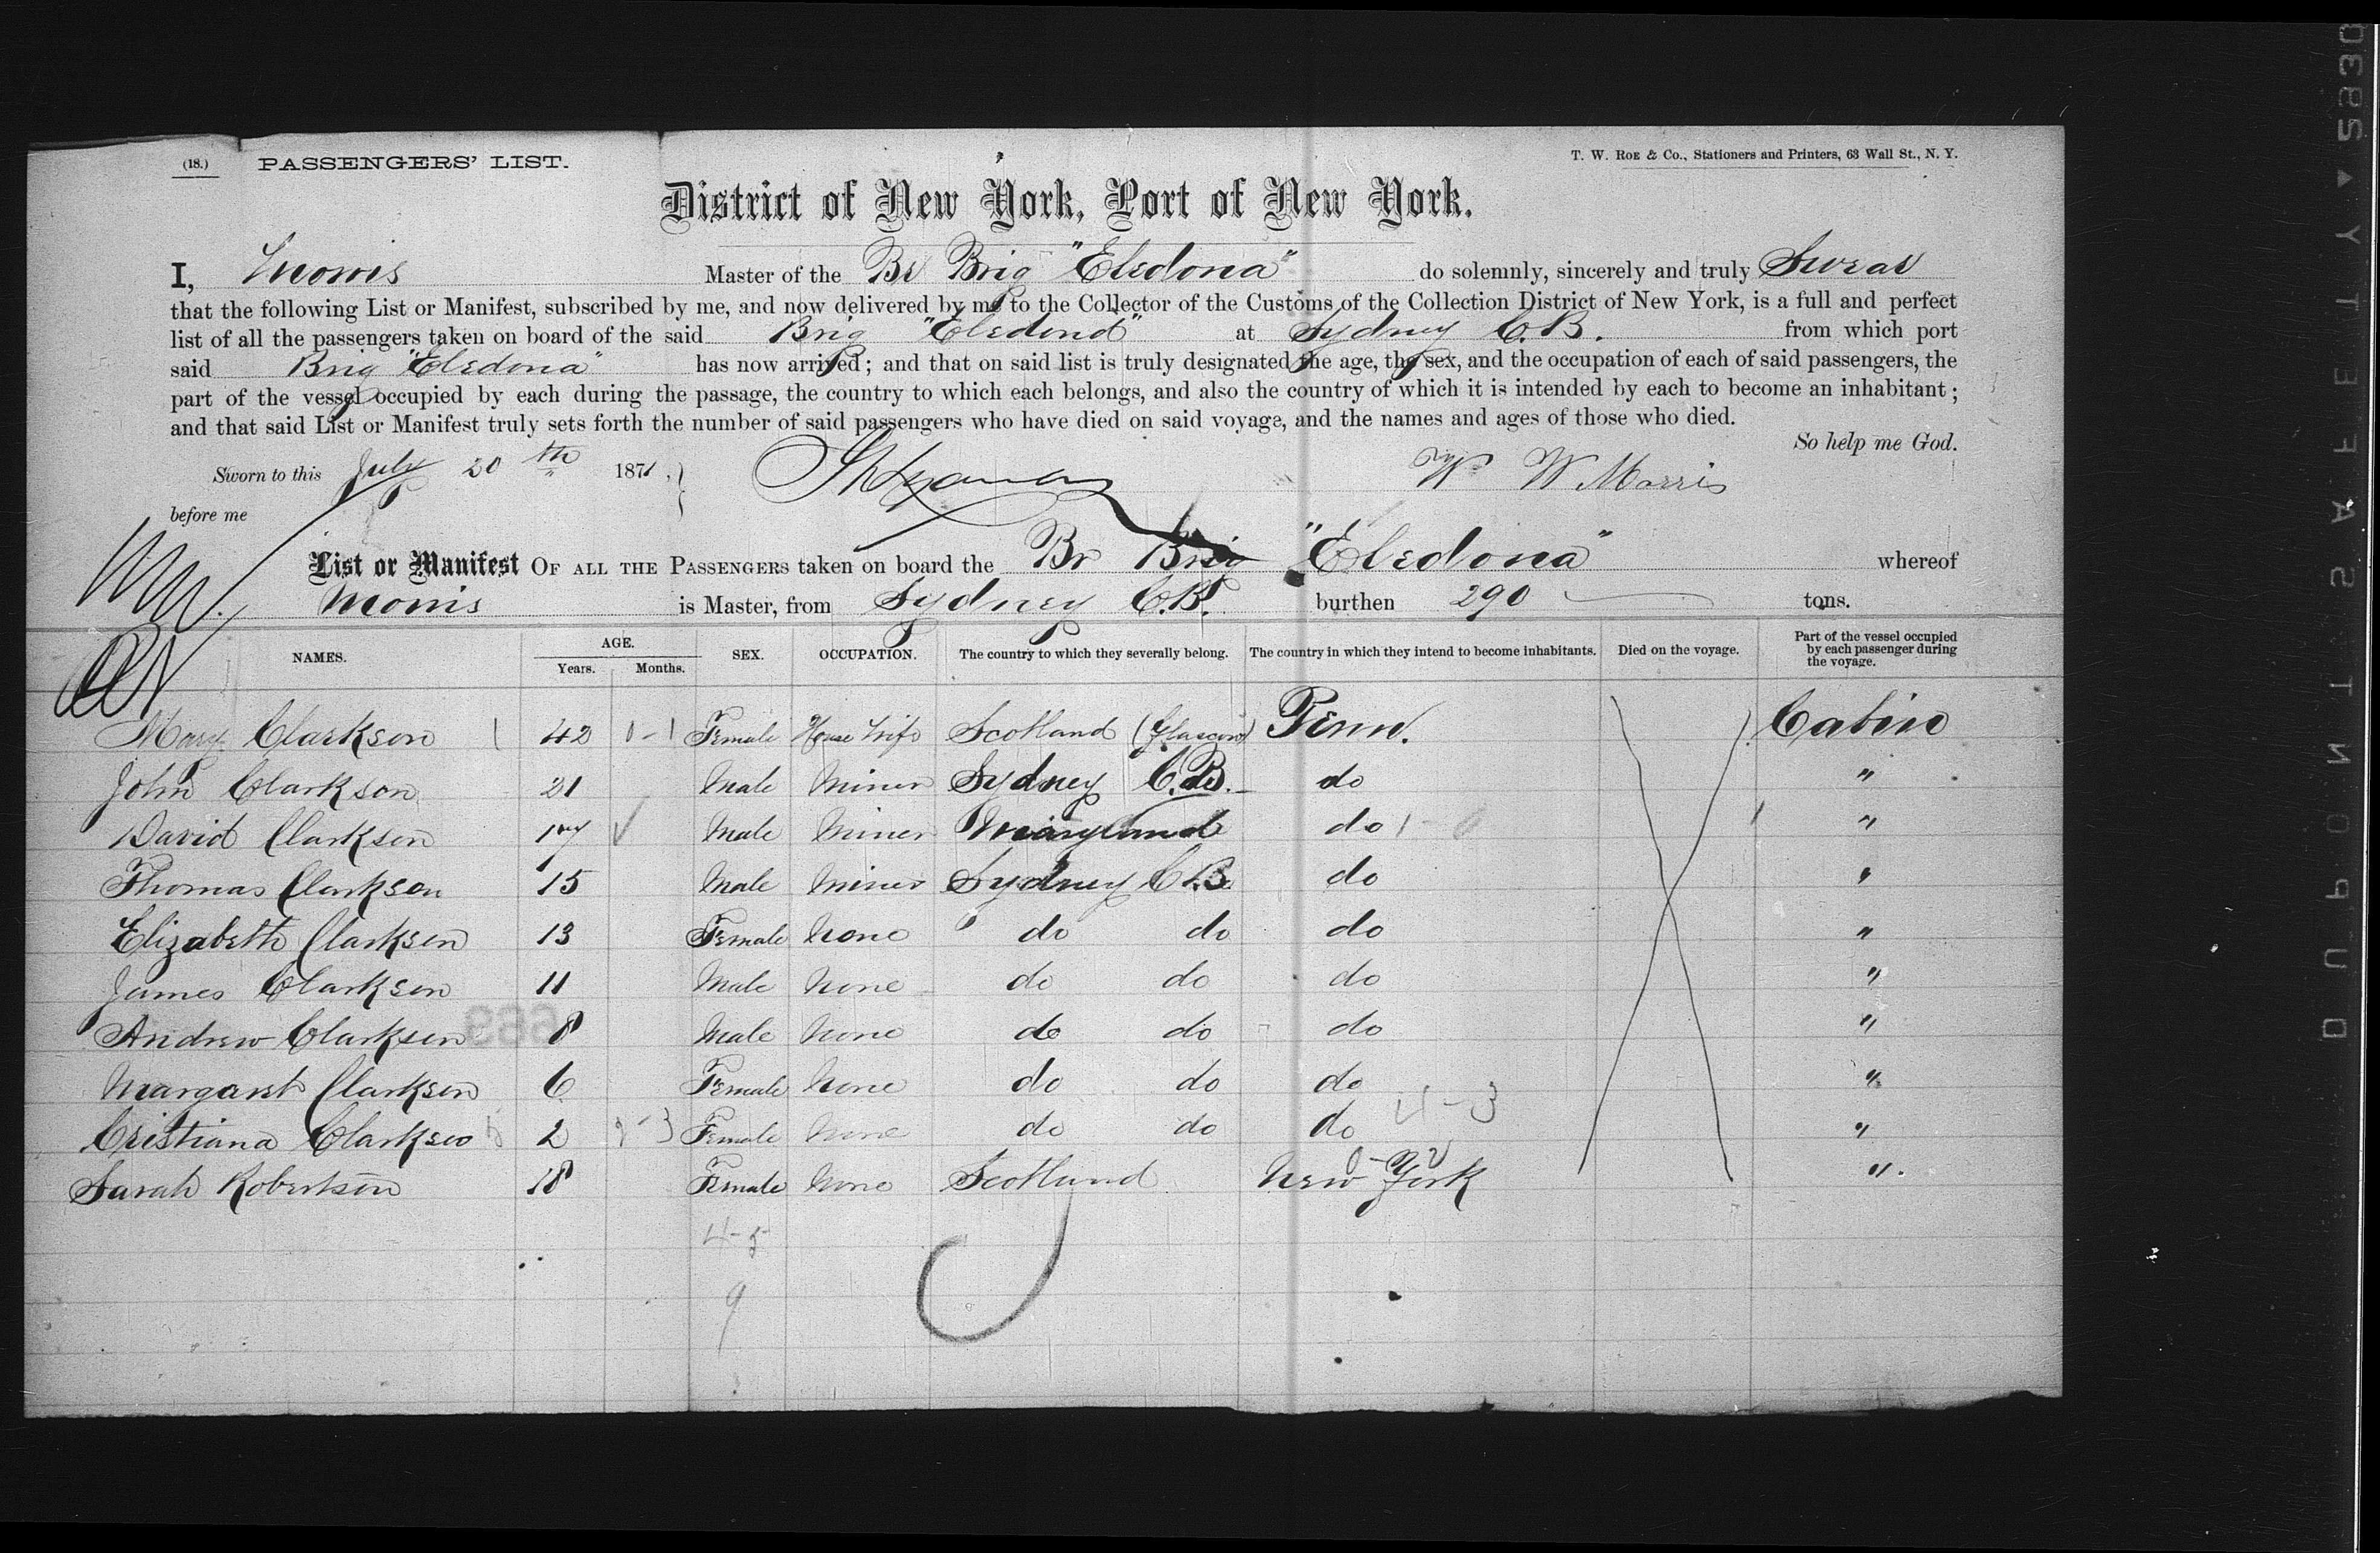 (18.) PASSENGERS' LIST. T. W. ROE & Co., Stationers and Printers, 63 Wall St., N. Y.
District of New York, Port of New York.
I, Morris Master of the Br Brig "Eledona" do solemnly, sincerely and truly Swear
that the following List or Manifest, subscribed by me, and now delivered by me to the Collector of the Customs of the Collection District of New York, is a full and perfect
list of all the passengers taken on board of the said Brig "Eledona" at Sydney C.B. from which port
said Brig "Eledona" has now arrived; and that on said list is truly designated the age, the sex, and the occupation of each of said passengers, the
part of the vessel occupied by each during the passage, the country to which each belongs, and also the country of which it is intended by each to become an inhabitant;
and that said List or Manifest truly sets forth the number of said passengers who have died on said voyage, and the names and ages of those who died.
So help me God.
Sworn to this July 20th 1871. W W Morris
before me
List or Manifest OF ALL THE PASSENGERS taken on board the Br Brig "Eledona" whereof
Morris is Master, from Sydney C.B. burthen 290 tons.
NAMES. AGE. Years. Months. SEX. OCCUPATION. The country to which they severally belong. The country in which they intend to become inhabitants. Died on the voyage. Part of the vessel occupied by each passenger during the voyage.
Mary Clarkson 1 42 0-1 Female House Wife Scotland (Glascow) Penn. Cabin
John Clarkson 21 Male Miner Sydney C.B. do "
David Clarkson 17 Male Miner Maryland do 1-0 "
Thomas Clarkson 15 Male Miner Sydney C.B. do "
Elizabeth Clarkson 13 Female None do do do "
James Clarkson 11 Male None do do do "
Andrew Clarkson 8 Male None do do do "
Margaret Clarkson 6 Female None do do do "
Cristiana Clarkson 2 Female None do do do 4-3 "
Sarah Robertson 18 Female None Scotland New York "
4-5
9
DUPONT SAFETY